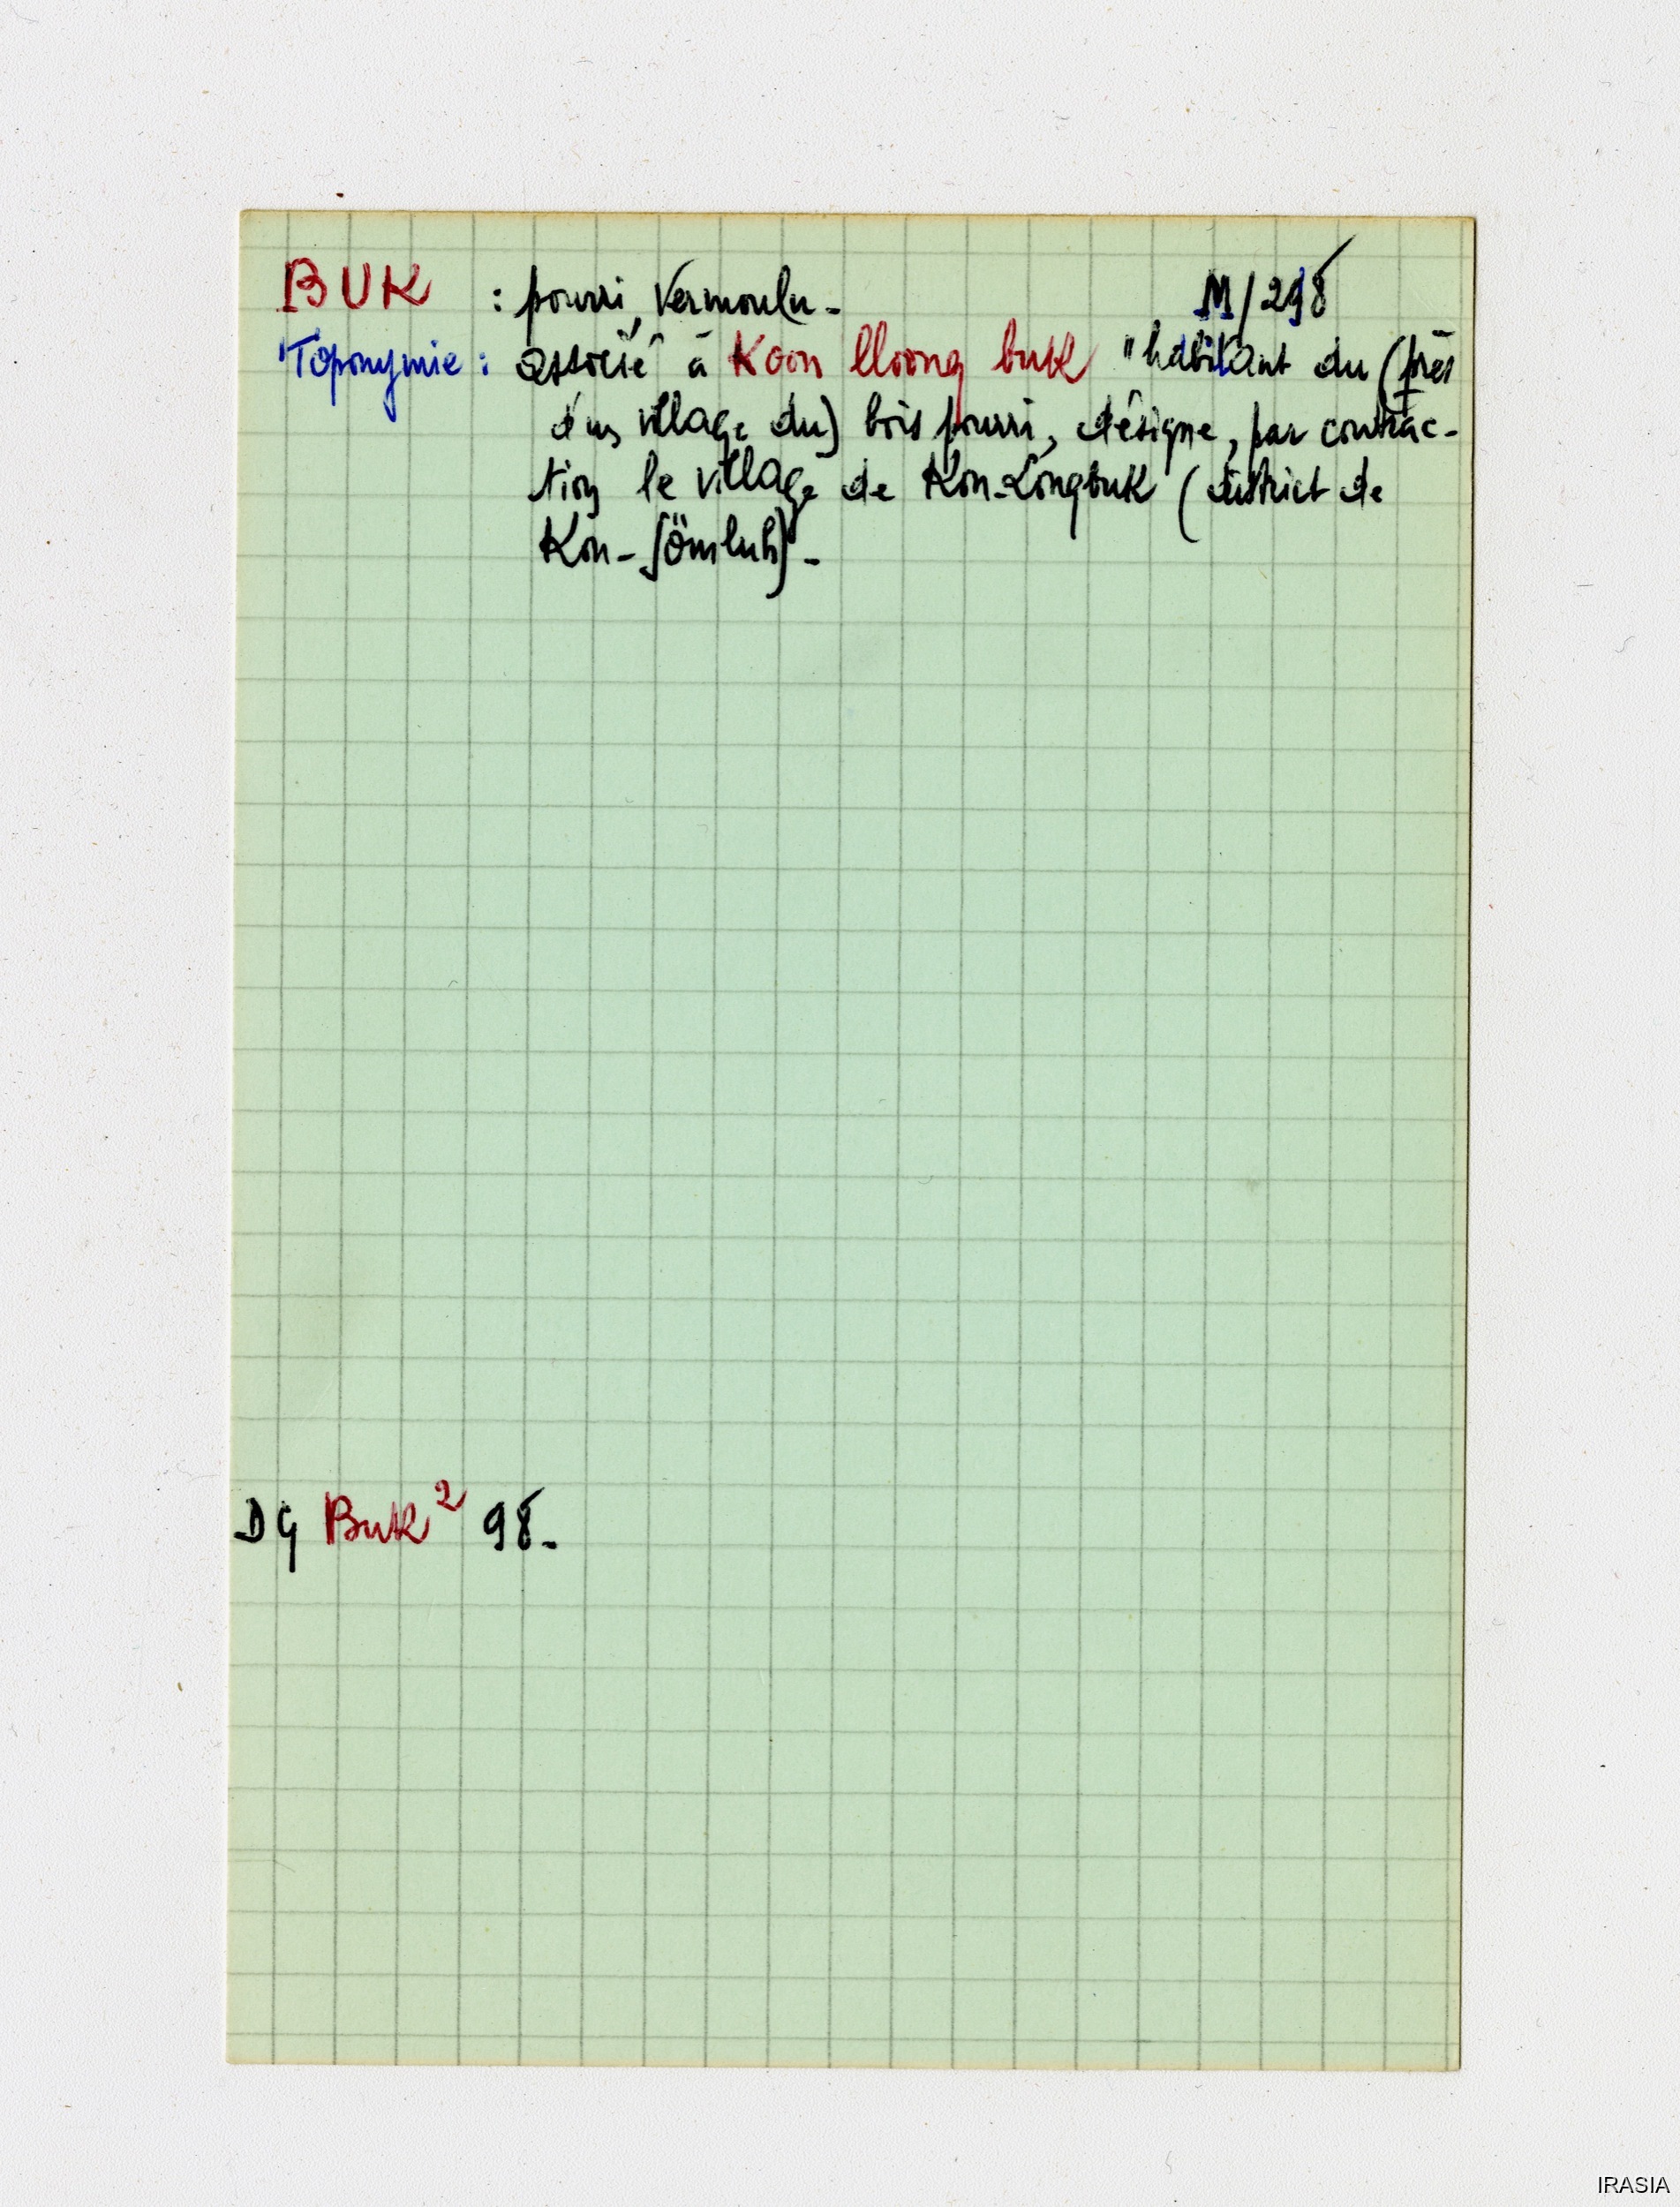 BUK : pourri, vermoulu - M/298
Toponymie : associé à Koon lloong buk "habitant du (près
d'un village du) bois pourri, désigne, par contrac-
tion le village de Kon-Longbuk (district de
Kon-Sömluh) -
DG Buk² 98 -
IRASIA